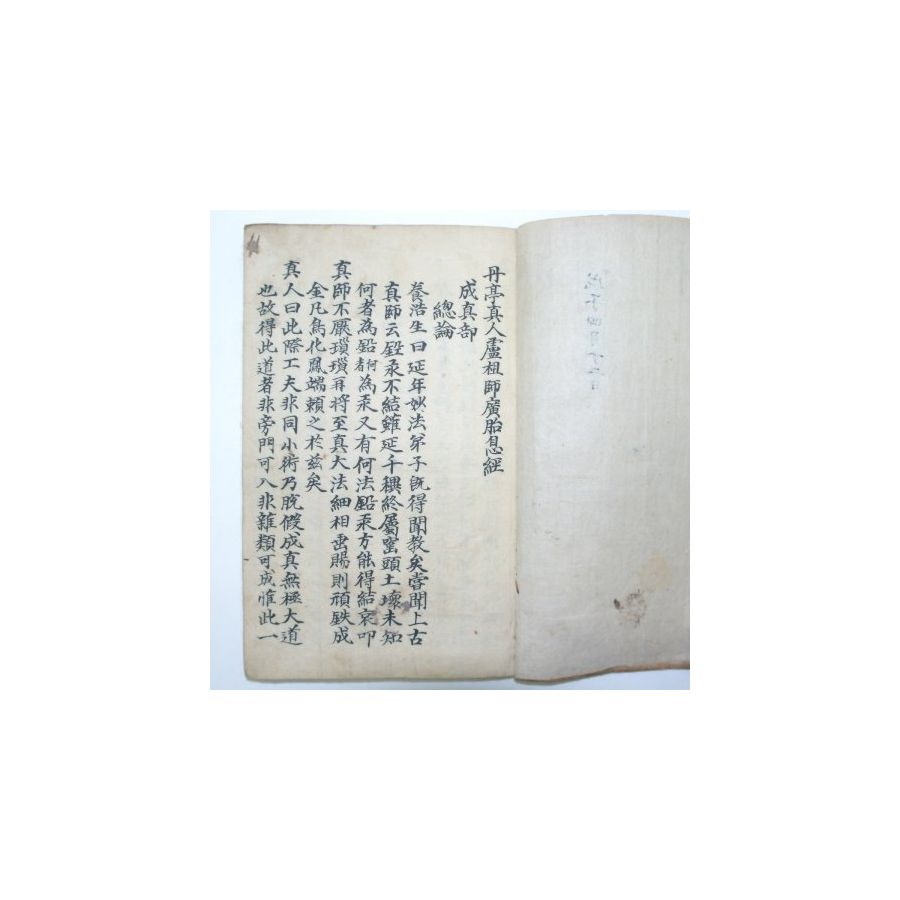 丹亭真人盧祖師廣胎息經
成真部
總論
養浩生曰延年妙法弟子旣得聞敎矣嘗聞上古
真師云鉛汞不結雖延千穤終屬塋頭土壞未知
何者為鉛何者為汞又有何法鉛汞方能得結哀叩
真師不厭瑣瑣再將至真大法細相垂賜則頑鉄成
金凡鳥化鳳端賴之於兹矣
真人曰此際工夫非同小術乃脫假成真無極大道
也故得此道者非旁門可入非雜類可成惟此一